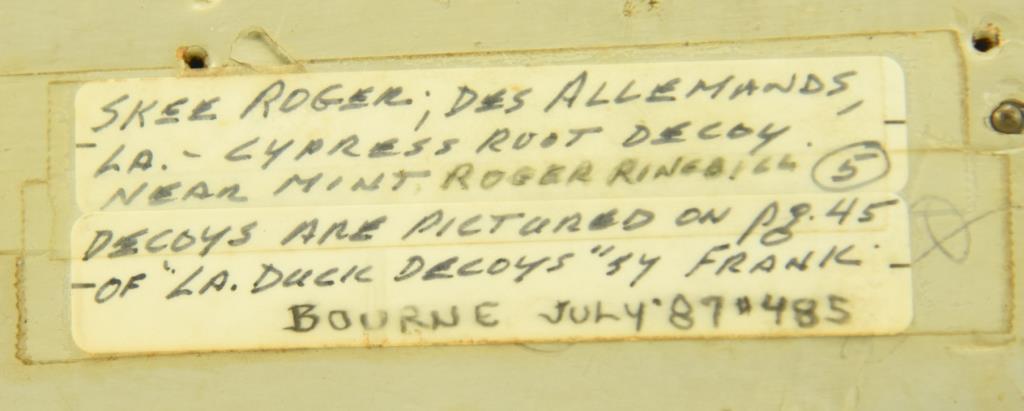 SKEE ROGER; DES ALLEMANDS,
LA. - CYPRESS ROOT DECOY.
NEAR MINT. ROGER RINGBILL 5
DECOYS ARE PICTURED ON pg. 45
OF "LA. DUCK DECOYS" BY FRANK.
BOURNE JULY '87 #485